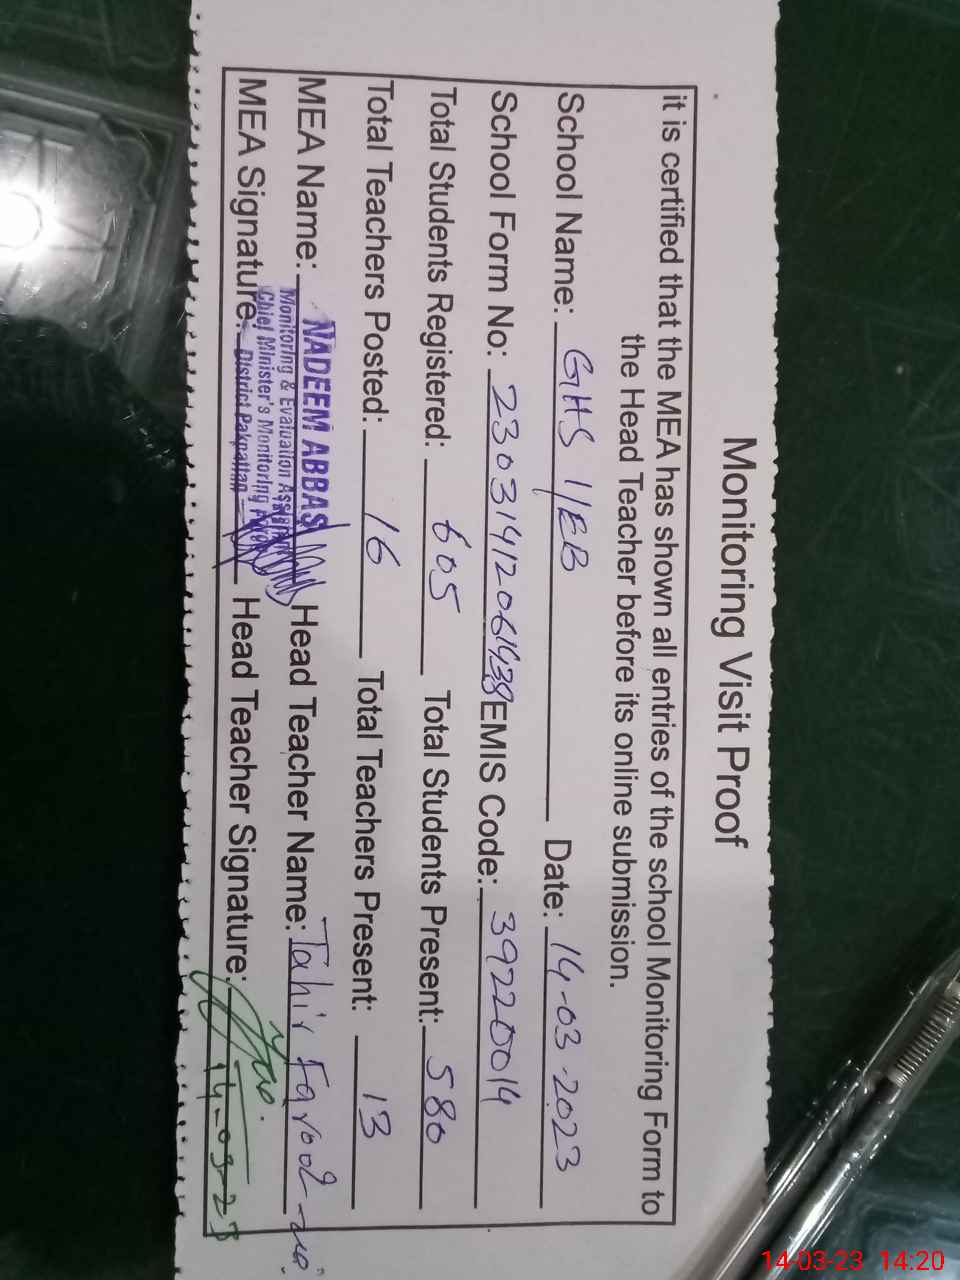 Monitoring Visit Proof
it is certified that the MEA has shown all entries of the school Monitoring Form to
the Head Teacher before its online submission.
School Name: GHS 1/EB Date: 14-03-2023
School Form No: EMIS Code: 39220014
Total Students Registered: 605 Total Students Present: 580
Total Teachers Posted: 16 Total Teachers Present: 13
MEA Name: NADEEM ABBAS Head Teacher Name: Tahir Farooq
Monitoring & Evaluation Assistant
Chief Minister's Monitoring
MEA Signature: District Pakpattan Head Teacher Signature:
14-03-23
14-03-23 14:20